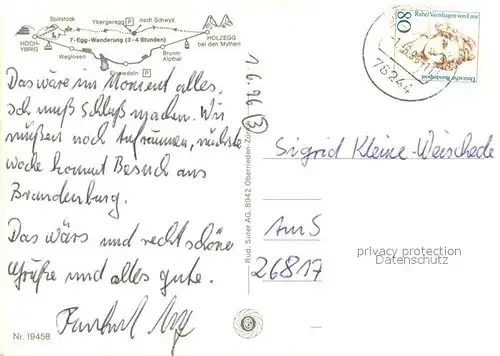 Spirstock
Ybergeregg P nach Schwyz
HOLZEGG
bei den Mythen
HOCH-
YBRIG
7-Egg-Wanderung (3-4 Stunden)
Weglosen
Brunni
Alpthal
Einsiedeln P
Das wäre im Moment alles,
ich muß Schluß machen. Wir
müßen noch Aufräumen, nächste
woche kommt Besuch aus
Brandenburg.
Das wärs und recht schöne
Grüße und alles gute.
Nr. 19458
1.6.96 3
Rud. Suter AG, 8942 Oberrieden-Zürich
80
Rahel Varnhagen von Ense
Deutsche Bundespost
78244
Sigrid Kleine-Weischede
Am S
26817
privacy protection
Datenschutz